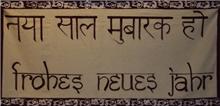 नया साल मुबारक हो
frohes neues jahr